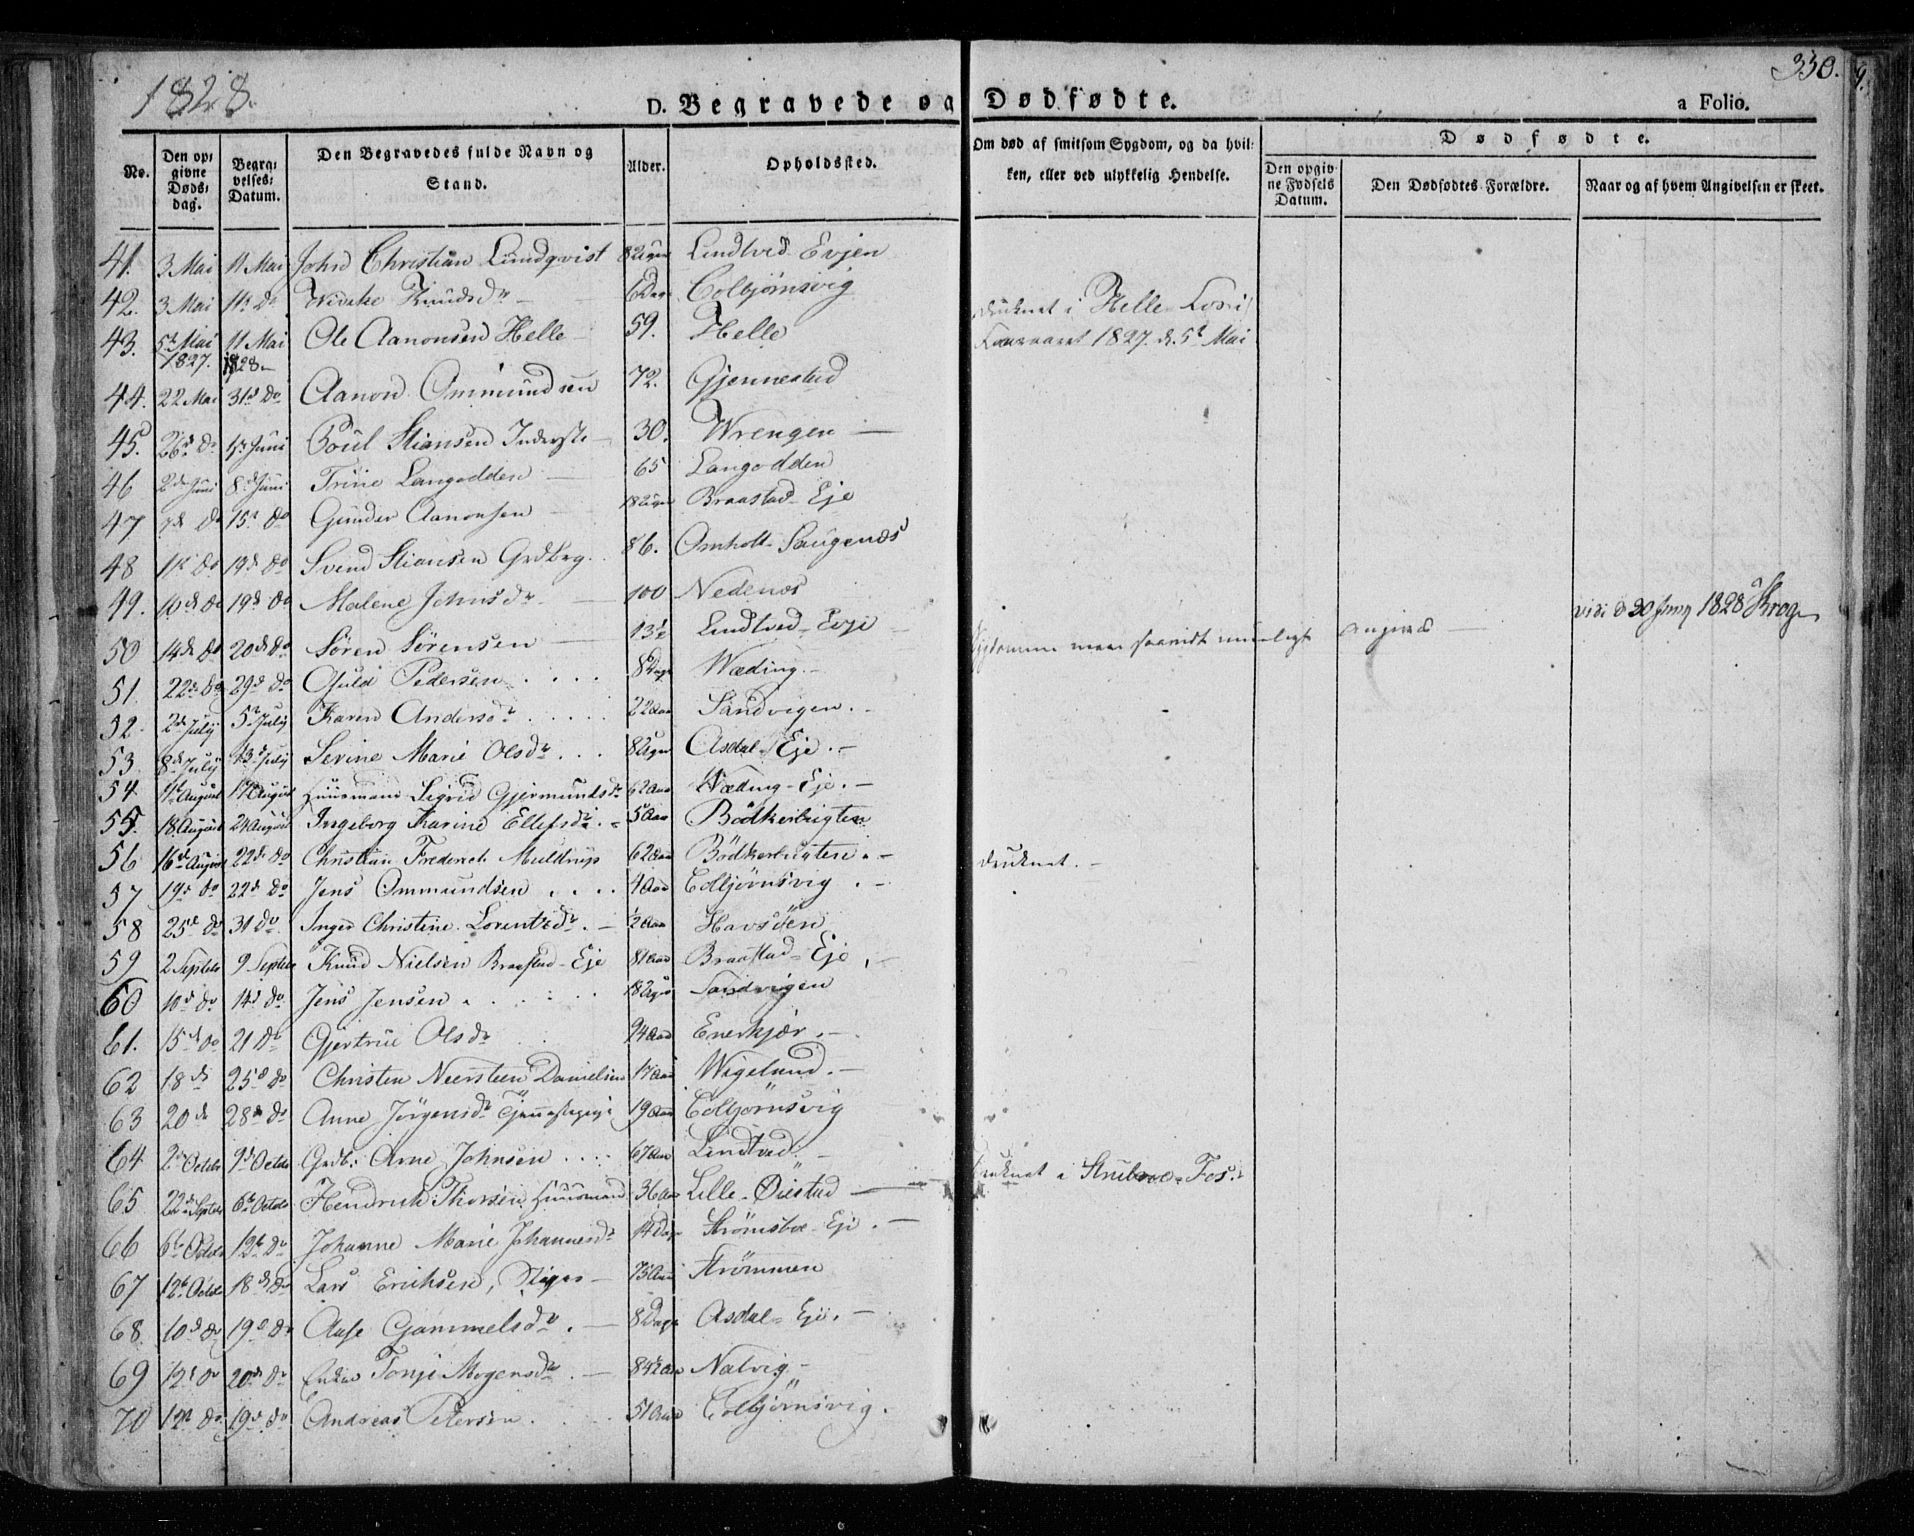 1828. 350.
D. Begravede og Dødfødte. a Folio.
No. Den opgivne Dødsdag. Begravelses-Datum. Den Begravedes fulde Navn og Stand. Alder. Opholdssted. Om død af smitsom Sygdom, og da hvilken, eller ved ulykkelig Hendelse. Dødfødte.
Den opgivne Fødsels Datum. Den Dødfødtes Forældre. Naar og af hvem Angivelsen er skeet.
41. 3 Mai 11 Mai John Christian Lundqvist 8 Uger Lindtved Evjen
42. 3 Mai 11te Do Knudsdr 6 Dage Colbjørnsvig
43. 5te Mai 1827. 11 Mai 1828 Ole Aanonsen Helle 59. Helle druknet i Helle Fos i Foraaret 1827. d. 5te Mai
44. 22 Mai 31te Do Aanon Ommundsen 72. Gjennestad
45. 26de Do 1te Juni Poul Stiansen Inderste 30. Wrengen
46 2de Juni 8de Juni Trine Langodden 65 Langodden
47 7de Do 15te Do Gunder Aanonsen 18 Uger Braastad Eje
48 11te Do 19de Do Svend Stiansen Grdbrg. 86. Omholt Saugenæs
49. 10de Do 19de Do Malene Johnsdr 100 Nedenæs
50 14de Do 20de Do Søren Sørensen 13½ Lindtved Evje Sygdommen angives vidi d 30 Juny 1828 Krog
51. 22de Do 29de Do Osuld Pedersen 8 Dage Wæding
52. 2de July 5te July Karen Andersdr 22 Aar Sandvigen
53. 8de July 13de July Serine Marie Olsdr 8 Uger Asdal Eje
54. 11te August 17 August Huusmand Sigrid Gjermundsdr 62 Aar Wæding Eje
55. 18 August 24 August Ingeborg Karine Ellefsdr 5 Aar Bödkerbugten
56 16de August 22de Do Christian Frederich Muldrup 62 Aar Bödkerbugten druknet.
57 19de Do 22de Do Jens Ommundsen 4 Aar Colbjørnsvig
58 25de Do 31 Do Inger Christine Lorentsdr ½ Aar Havsöen
59 2 Septbr 9 Septbr Knud Nielsen Braastad Eje 81 Aar Braastad Eje
60 10de Do 14de Do Jens Jensen 18 Uger Sandvigen
61. 15de Do 21 Do Gjertrue Olsdr 94 Aar Enerkjær
62 18de 25de Do Christen Neersteen Danielsen 17 Aar Wigelund
63 20de 28de Do Anne Jörgensdr 19 Aar Colbjörnsvig
64 2de Octbr 9de Octbr Grdb. Arne Johnsen 67 Aar Lindtved
65 22de Septbr 6te Octbr Hendrich Thorsen Huusmand 36 Aar Lille Øiestad druknet i Strubroe Fos.
66 6te Octbr 12te Do Johanne Marie Johannesdr 14 Dage Strømsboe Eje
67 12te Octbr 18de Do Lars Erichsen, 73 Aar Strømmen
68. 10de Do 19de Do Aase Gammelsdr 8 Dage Asdal Eje
69 12te Do 20de Do Enke Tonje Mogensdr 84½ Aar Natvig
70 12te Do 19de Do Andreas Petersen 51 Aar Colbjørnsvig